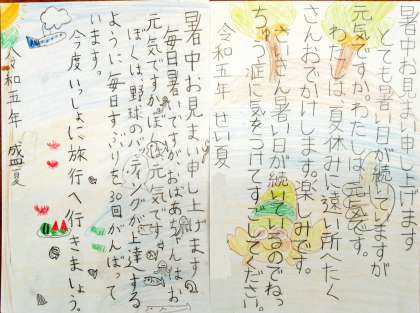 暑中お見まい申し上げます
とても暑い日が続いていますが
元気ですか。わたしは、元気です。
わたしは、夏休みに遠い所へたく
さんおでかけします。楽しみです。
さいきん暑い日が続いているのでねっ
ちゅう症に気をつけてすごしてください。
令和五年 せい夏
暑中お見まい申し上げます。
毎日暑いですがおばあちゃんはお
元気ですか。ぼくは元気です。
ぼくは、野球のバッティングが上達する
ように毎日すぶりを30回がんばって
います。
今度いっしょに旅行へ行きましょう。
令和五年 盛夏